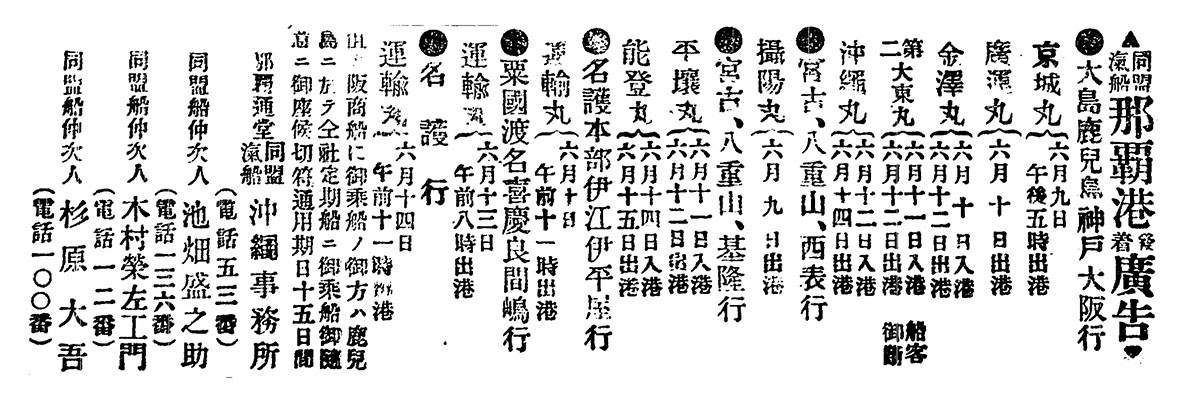 ▲同盟汽船那覇港發着廣告▼
●大島鹿兒島神戸大阪行
京城丸 六月九日午後五時出港
廣運丸 六月十日出港
金澤丸 六月十日入港 六月十二日出港
第二大東丸 六月十一日入港 六月十二日出港 船客御斷
沖繩丸 六月十二日入港 六月十四日出港
●宮古、八重山、西表行
攝陽丸 六月九日出港
●宮古、八重山、基隆行
平壤丸 六月十一日入港 六月十二日出港
能登丸 六月十四日入港 六月十五日出港
●名護本部伊江伊平屋行
運輸丸 六月十日午前十一時出港
●粟國渡名喜慶良間嶋行
運輸丸 六月十三日午前八時出港
●名護行
運輸丸 六月十四日午前十一時出港
阪商船に御乘船ノ御方ハ鹿兒
島ニ於テ仝社定期船ニ御乘船御隨
意ニ御座候切符通用期日十五日間
那覇通堂 同盟汽船 沖繩事務所
(電話五三番)
同盟船仲次人 池畑盛之助
(電話一三六番)
同盟船仲次人 木村榮左工門
(電話一二番)
同盟船仲次人 杉原大吾
(電話一〇〇番)